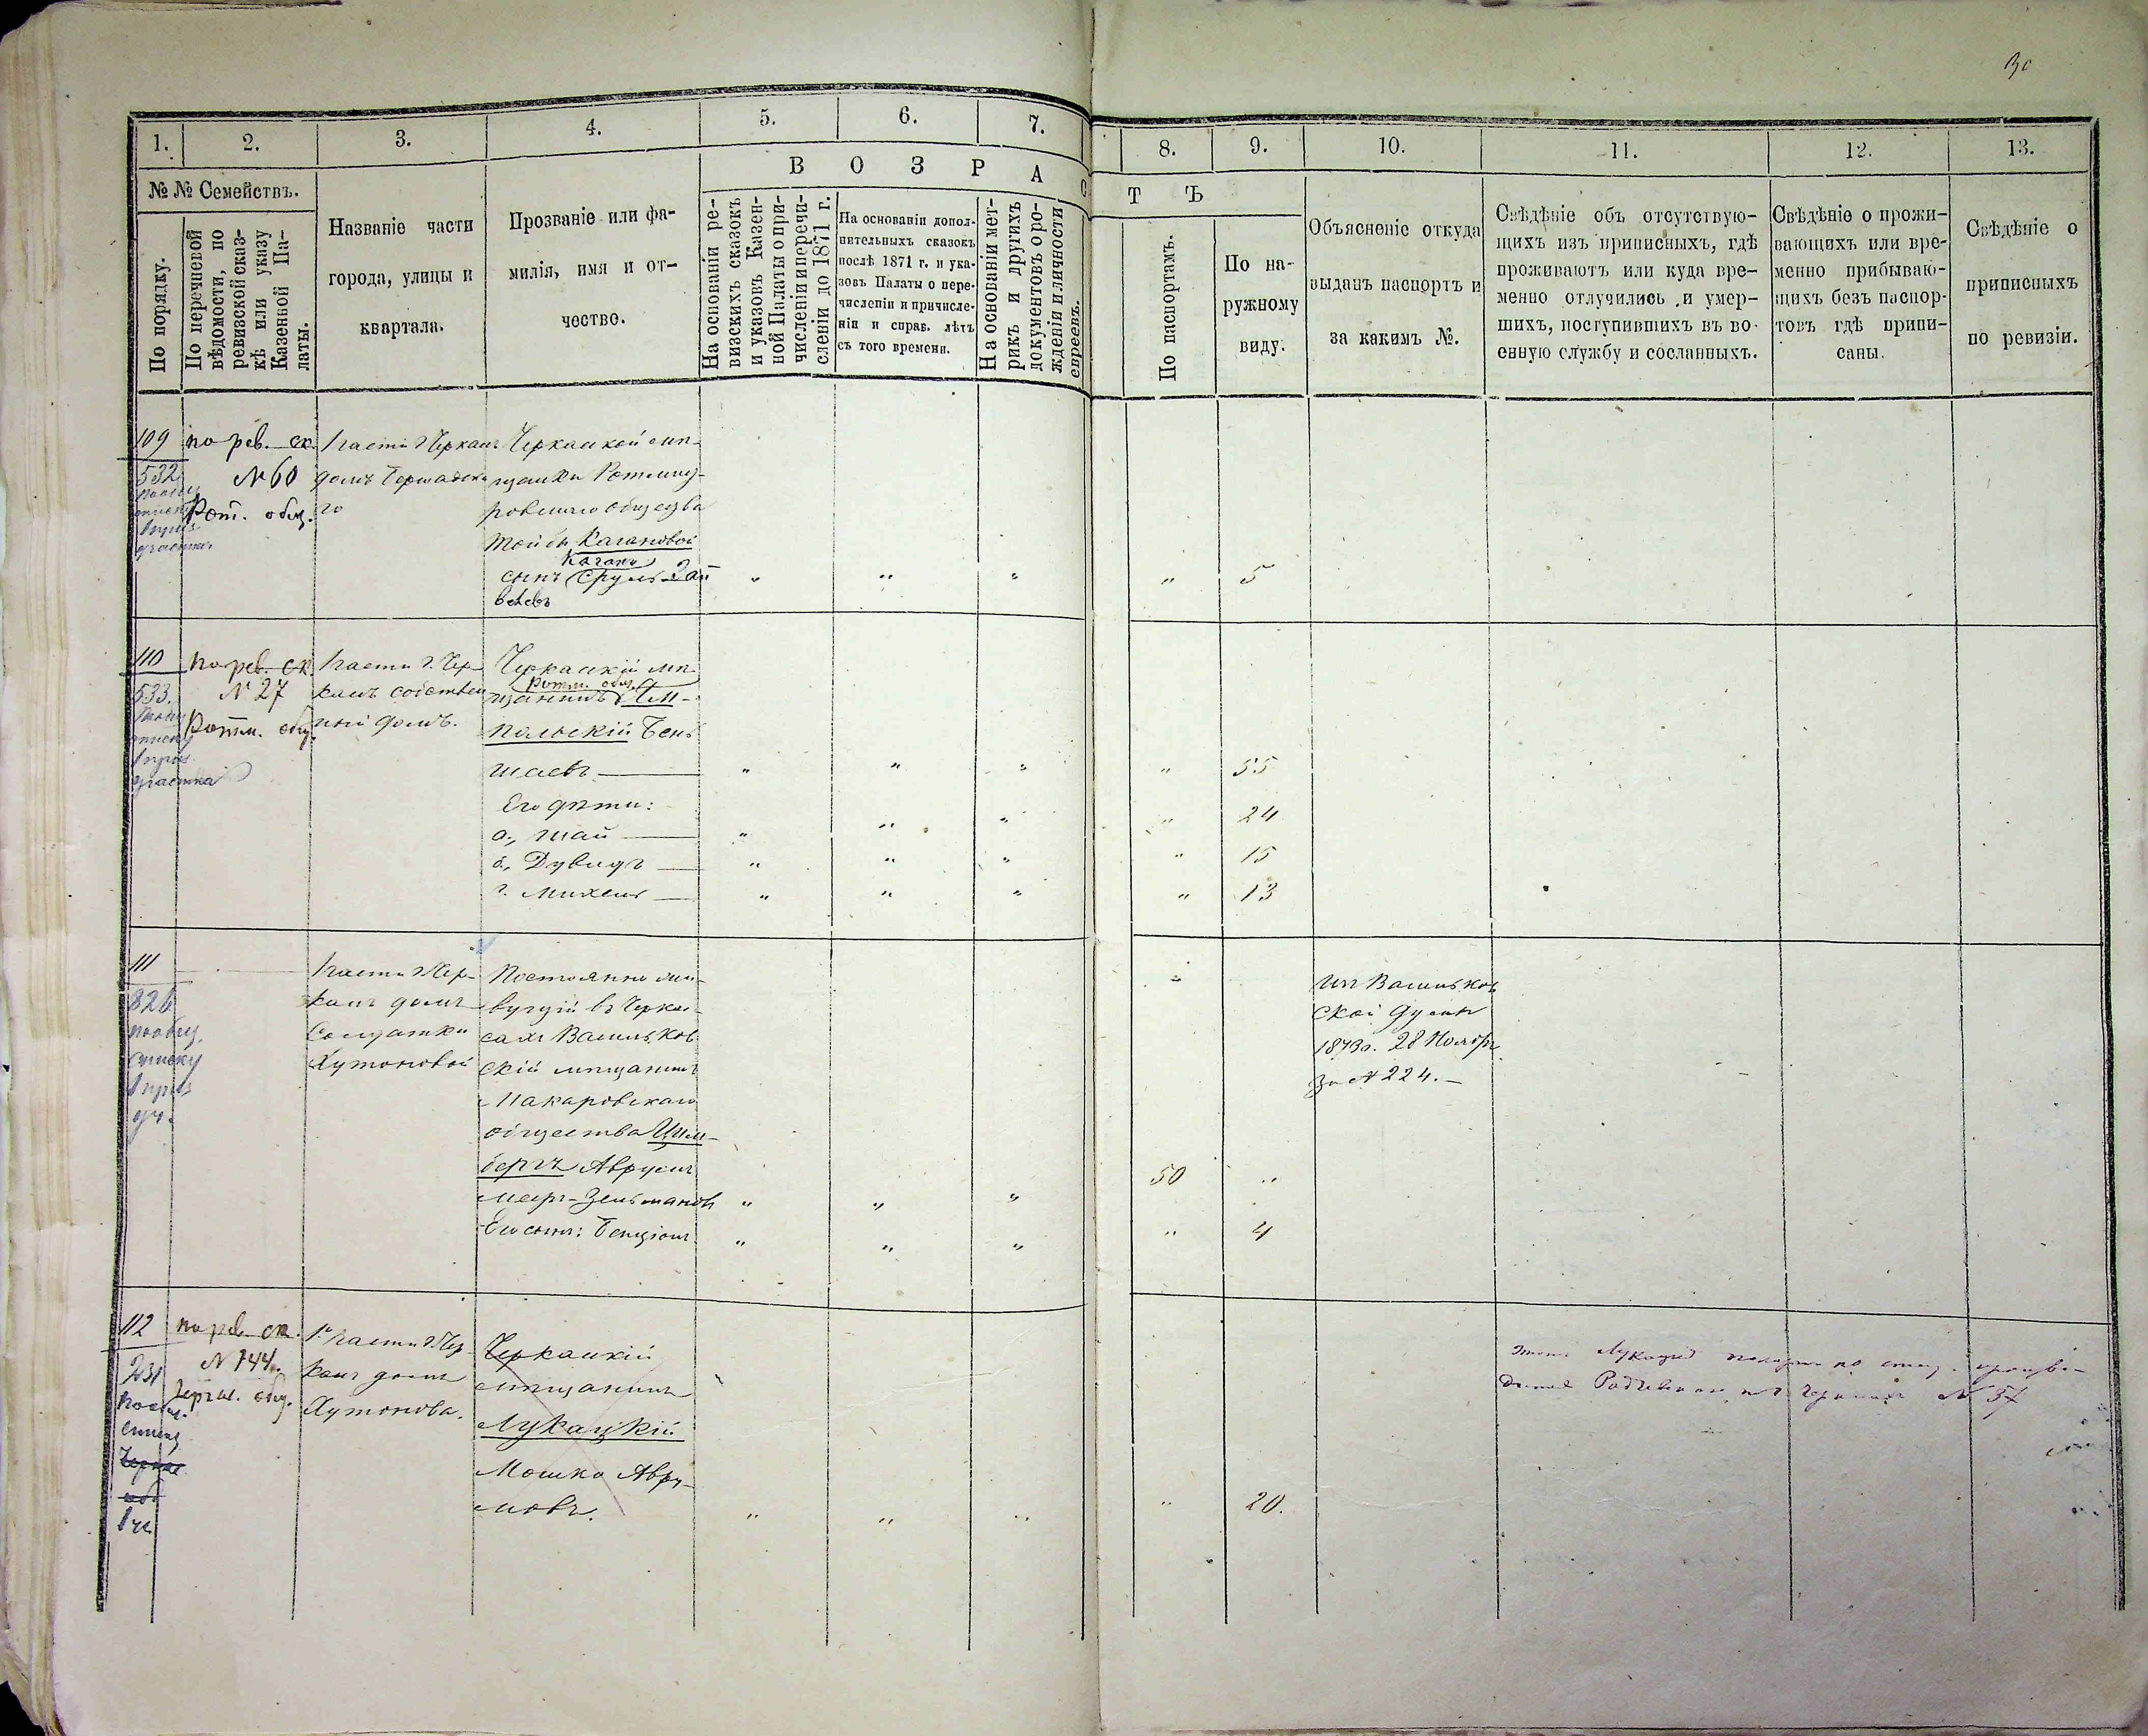 1.
2.
3.
4.
5.
6.
7.
8.
9.
10.
11.
12.
13.
№ № Семействъ.
По порядку.
По перечневой
вѣдомости, по
ревизской сказ-
кѣ или указу
Казенной Па-
латы.
Названіе части
города, улицы и
квартала.
Прозваніе или фа-
милія, имя и от-
чество.
В О З Р А С Т Ъ
На основаніи ре-
визскихъ сказокъ
и указовъ Казен-
ной Палаты о при-
численіи и перечи-
сленіи до 1871 г.
На основаніи допол-
нительныхъ сказокъ
послѣ 1871 г. и ука-
зовъ Палаты о пере-
численіи и причисле-
ніи и справ. лѣтъ
съ того времени.
На основаніи мет-
рикъ и другихъ
документовъ о ро-
жденіи и личности
евреевъ.
По паспортамъ.
По на-
ружному
виду.
Объясненіе откуда
выданъ паспортъ и
за какимъ №.
Свѣдѣніе объ отсутствую-
щихъ изъ приписныхъ, гдѣ
проживаютъ или куда вре-
менно отлучились и умер-
шихъ, поступившихъ въ во-
енную службу и сосланныхъ.
Свѣдѣніе о прожи-
вающихъ или вре-
менно прибываю-
щихъ безъ паспор-
товъ гдѣ припи-
саны.
Свѣдѣніе о
приписныхъ
по ревизіи.
109
532
по рев. ск.
№ 60
Рот. общ.
1 части г. Черкасъ
домъ
го
Черкаской мѣ-
щанки Ротмист-
ровскаго общества
Кагановой
Каганъ
сынъ Сруль-Зай
велевъ
" " " " 5
110
533.
участка
по рев. ск.
№ 27
Ротм. общ.
1 части г. Чер-
касъ собствен
ный домъ.
Черкаскій мѣ-
Ротм. общ.
щанинъ Ям-
польскій Бень
шаевъ
" " " " 55
Его дѣти:
а., Шай
" " " " 24
б., Дувидъ
" " " " 15
г. Михель
" " " " 13
111
826
по общ.
списку
уч.
1 части г. Чер-
касъ домъ
Солдатки
Хутоновой
Постоянно жи-
вущій въ Черка-
сахъ Васильков
скій мѣщанинъ
Макаровскаго
общества Цим-
бергъ Аврумъ
Меер-Зельмановъ
" " " 50 "
Его сынъ: Бенціонъ
" " " " 4
Изъ Васильков
ской думы
1873 г. 28 Ноября
За № 224.
112
231
по рев. ск.
№ 144.
Черкас. общ.
1 части г. Чер-
касъ домъ
Хутонова.
Черкаскій
мѣщанинъ
Лукацкій
Мошко Авру-
мовъ.
" " " " 20.
Лукацкій
№ 37